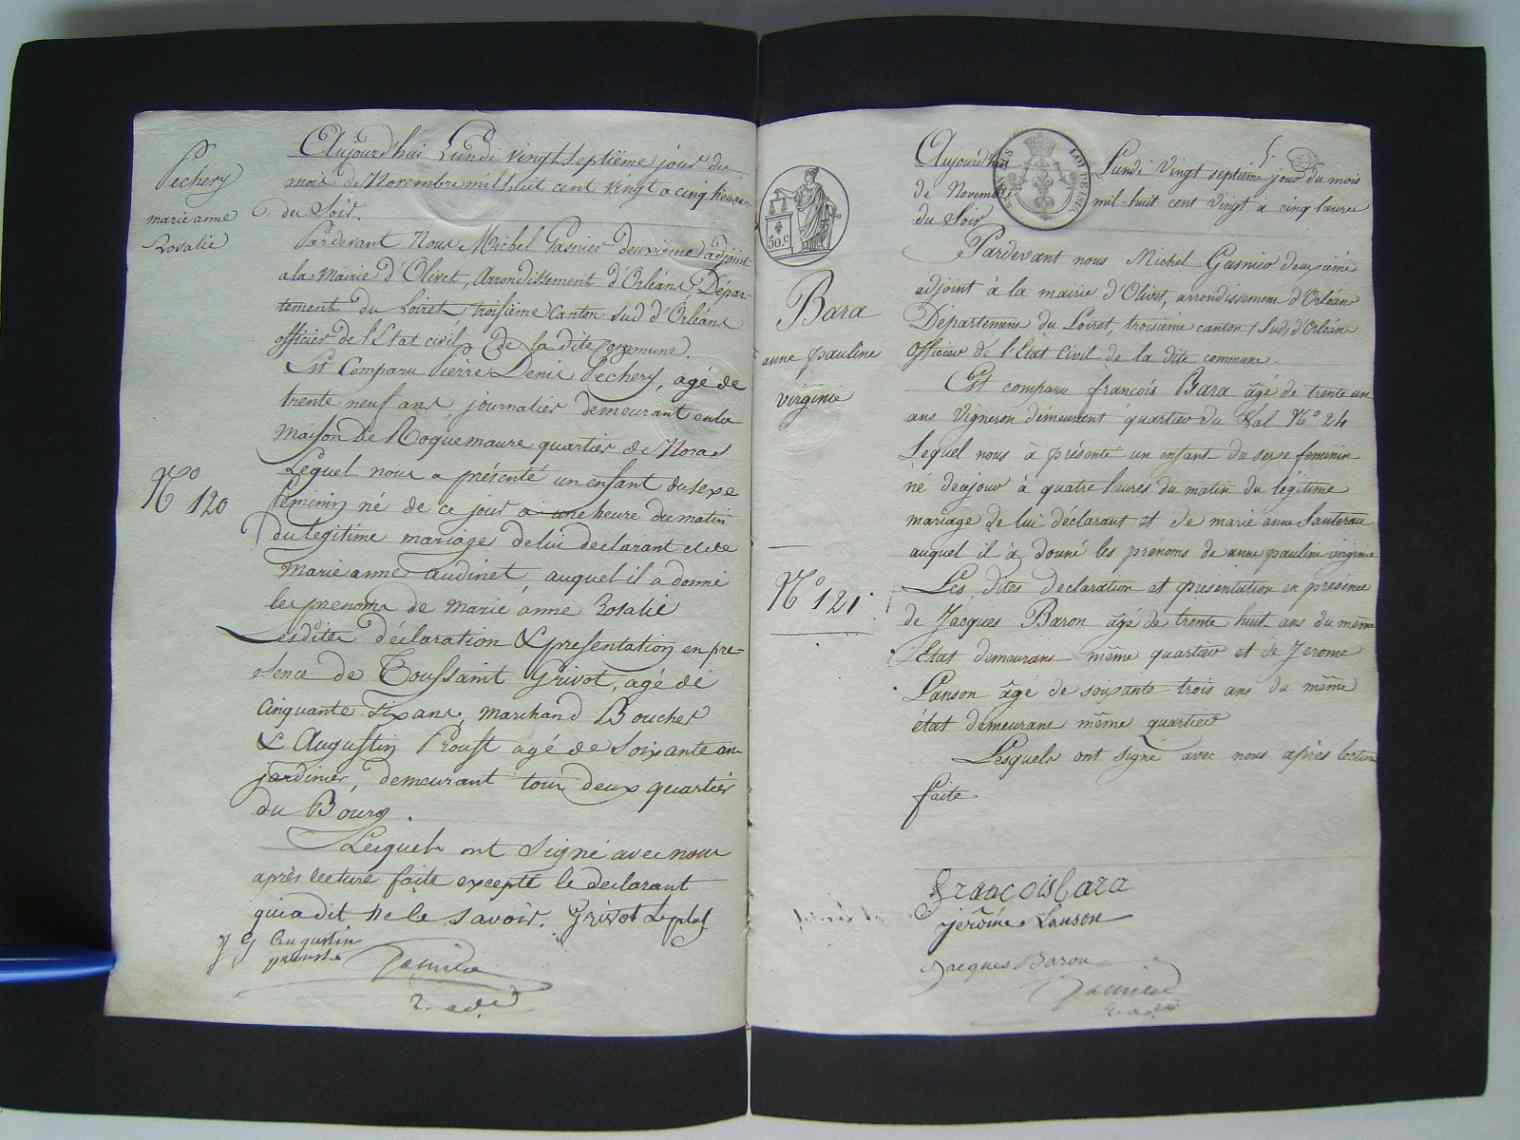 Pechery
marie anne
Rosalie
N° 120
Aujourd'hui Lundi vingt septième jour du
mois de Novembre mil huit cent vingt a cinq heures
du Soir.
Pardevant Nous Michel Gasnier deuxième adjoint
a la Mairie d'Olivet, Arrondissement d'Orléans, Dépar-
tement du Loiret, troisième Canton Sud d'Orléans
officier de l'Etat civil de la dite Commune.
Est Comparu Pierre Denis Pechery, agé de
trente neuf ans journalier demeurant en la
Maison de Roquemaure quartier de
Lequel nous a présenté un enfant du sexe
feminin né de ce jour a une heure du matin
du legitime mariage de lui declarant et de
Marie anne audinet, auquel il a donné
les prenoms de Marie anne Rosalie
Les dites déclaration & presentation en pre-
sence de Toussaint Grivot, agé de
Cinquante Six ans, marchand Boucher
& Augustin Proust agé de Soixante ans
jardinier, demeurant tous deux quartier
du Bourg.
Lesquels ont Signé avec nous
après lecture faite excepté le declarant
qui a dit ne le savoir. Grivot
Augustin
2. adt
50.c
Bara
anne pauline
virginie
N° 121.
Aujourd'hui Lundi Vingt septieme jour du mois
de Novembre mil-huit cent Vingt a cinq heures
du Soir
Pardevant nous Michel Gasnier deuxieme
adjoint à la mairie d'Olivet, arrondissement d'Orléans
Département du Loiret, troisième canton (Sud) d'Orléans
Officier de l'Etat Civil de la dite commune.
Est comparu françois Bara âgé de trente un
ans Vigneron demeurant quartier du Val N° 24
Lequel nous à présenté un enfant du sexe feminin
né de ce jour à quatre heures du matin du légitime
mariage de lui déclarant et de marie anne Sautereau
auquel il à donné les prénoms de anne pauline virginie
Les dites declaration et presentation en presence
de Jacques Baron âgé de trente huit ans du même
Etat demeurant même quartier et de Jerome
Lanson âgé de soixante trois ans du même
état demeurant même quartier
Lesquels ont signé avec nous après lecture
faite
francois bara
jerôme Lanson
Jacques Baron
Gasnier
2. adt